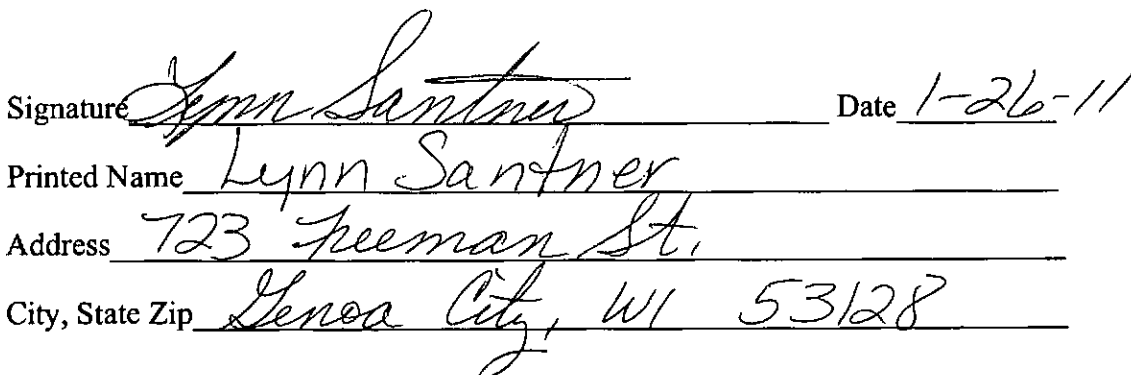 Signature Lynn Santner Date 1-26-11
Printed Name Lynn Santner
Address 723 Freeman St.
City, State Zip Genoa City, WI 53128